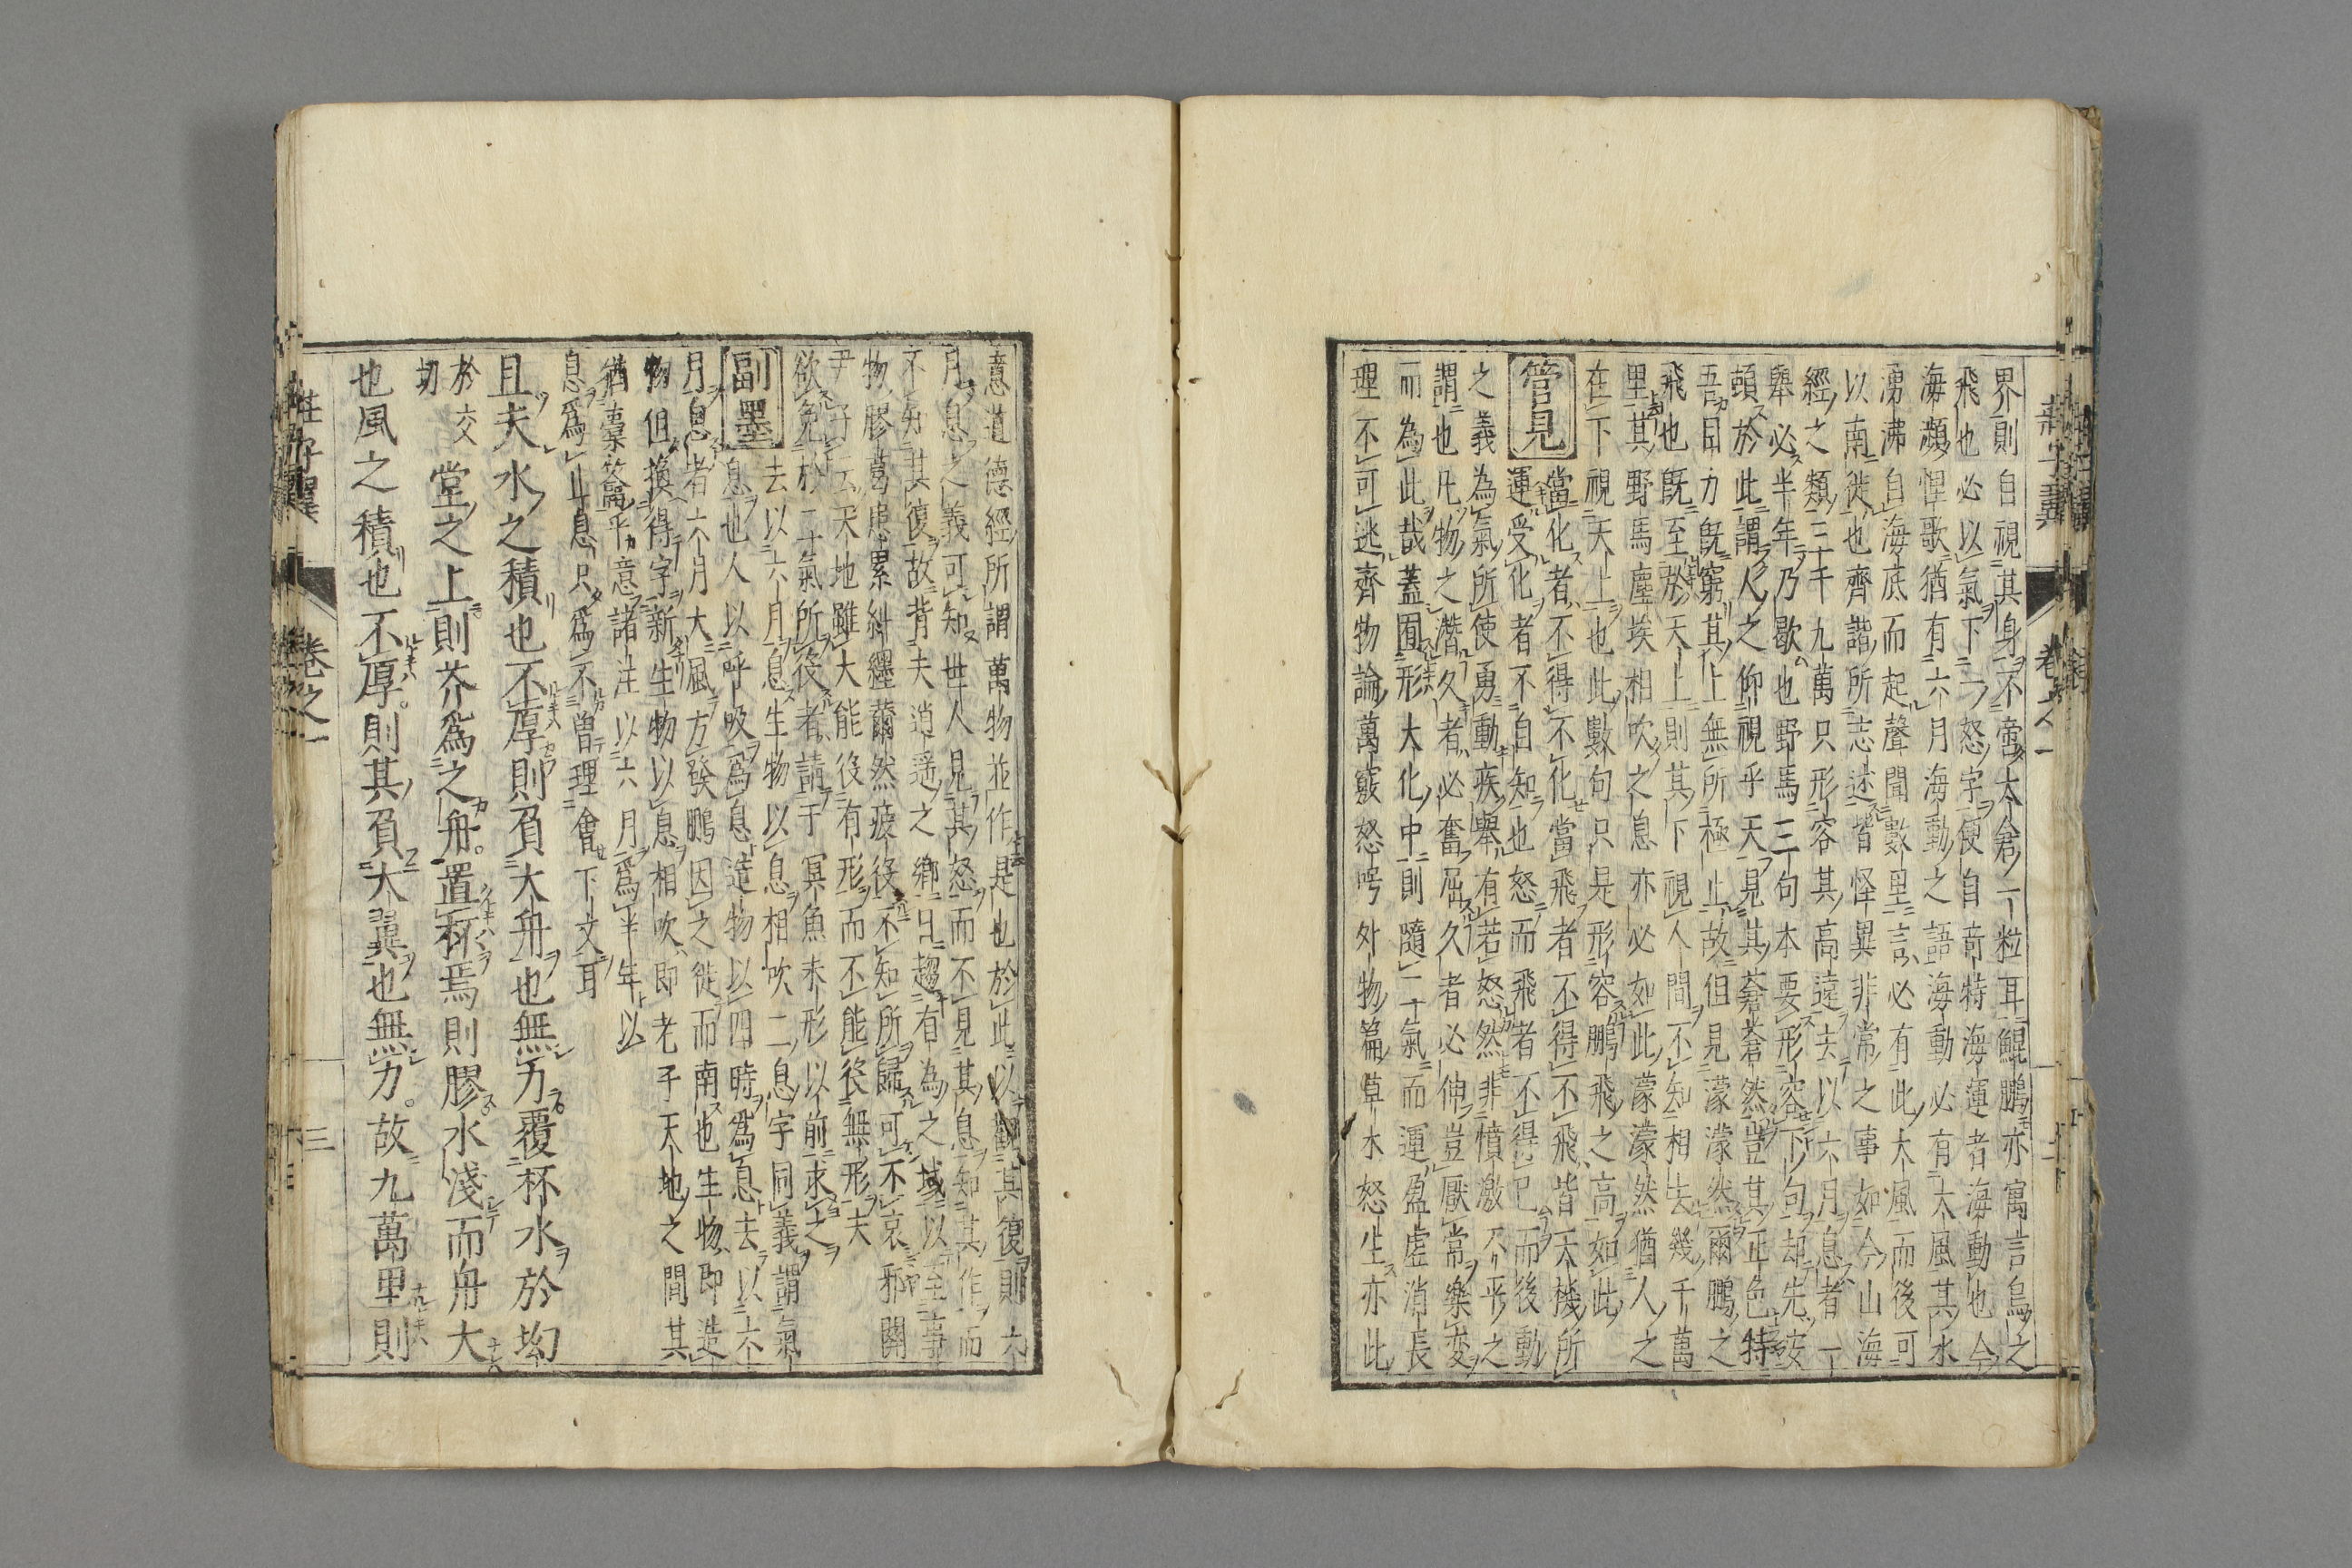 界則自視其身不啻太倉一粒耳鯤鵬亦寓言烏之
飛也必以氣下一怒字便自奇特海運者海動也今
海瀕俚歌猶有六月海動之語海動必有大風其水
湧沸自海底而起聲聞數里言必有此大風而後可
以南徙也齊諧所志述皆怪異非常之事如今山海
經之類三千九萬只形容其高遠去以六月息者一
舉必半年乃歇也野馬三句本要形容下句却先安
頭於此謂人之仰視乎天見其蒼蒼然豈其正色特
吾目力既窮其上無所極止故但見濛濛然爾鵬之
飛也既至於天上則其下視人間不知相去幾千萬
里其野馬塵埃相吹之息亦必如此濛濛然猶人之
在下視天上也此數句只是形容鵬飛之高如此
管見
當化者不得不化當飛者不得不飛皆天機所
運受化者不自知也怒而飛者不得已而後動
之義為氣所使勇動疾舉有若怒然非憤激不平之
謂也凡物之潛久者必奮屈久者必伸豈厭常樂変
而為此哉蓋囿形大化中則隨二氣而運盈虛消長
理不可逃齊物論萬竅怒呺外物篇草木怒生亦此
莊子翼
卷之一
意道德經所謂萬物並作是也於此以觀其復則六
月息之義可知世人見其怒而不見其息知其作而
不知其復故背夫逍遙之鄉日趨有為之域以至事
物膠葛患累糾纏薾然疲役不知所歸可不哀邪關
尹子云天地雖大能役有形而不能役無形夫
欲免於二氣所役者請于冥魚未形以前求之
副墨
去以六月息生物以息相吹二息字同義謂氣
息也人以呼吸為息造物以四時為息去以六
月息者六月大風方發鵬因之徙而南也生物即造
物但換得字新生物以息相吹即老子天地之間其
猶橐籥乎意諸注以六月為半年以
息為止息只為不曾理會下文耳
且夫水之積也不厚則負大舟也無力覆杯水於坳
於交
切
堂之上則芥為之舟置杯焉則膠水淺而舟大
也風之積也不厚則其負大翼也無力故九萬里則
莊子翼
卷之一
三